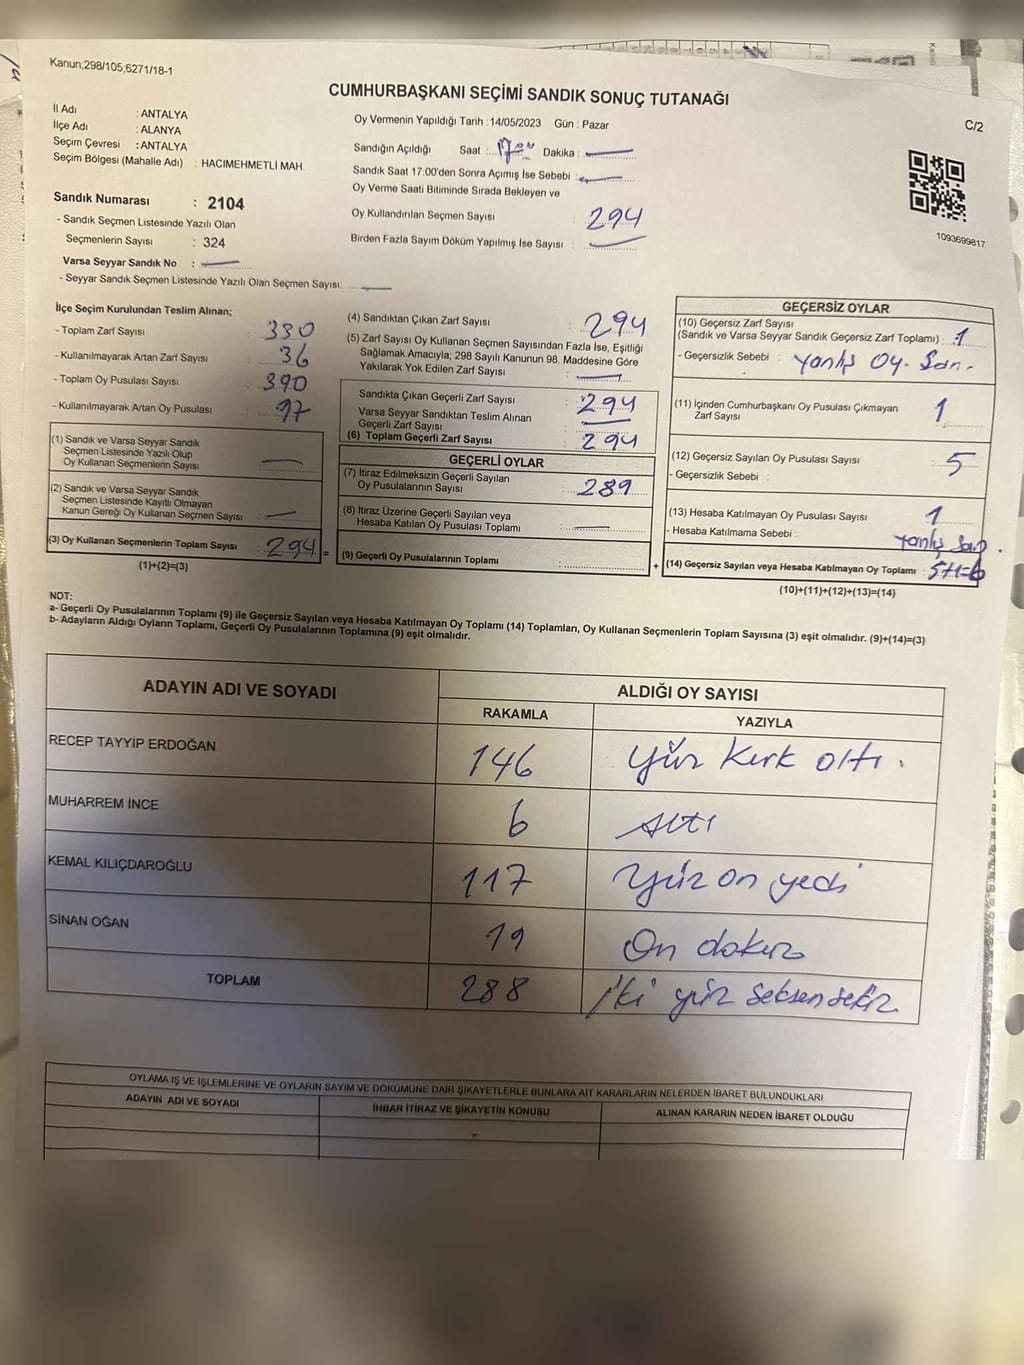 Kanun;298/105,6271/18-1
CUMHURBAŞKANI SEÇİMİ SANDIK SONUÇ TUTANAĞI
C/2
İl Adı : ANTALYA
İlçe Adı : ALANYA
Seçim Çevresi : ANTALYA
Seçim Bölgesi (Mahalle Adı) : HACIMEHMETLİ MAH.
Oy Vermenin Yapıldığı Tarih : 14/05/2023 Gün : Pazar
Sandığın Açıldığı Saat : 17:00 Dakika :
Sandık Saat 17:00'den Sonra Açımış İse Sebebi :
Oy Verme Saati Bitiminde Sırada Bekleyen ve
Oy Kullandırılan Seçmen Sayısı : 294
Birden Fazla Sayım Döküm Yapılmış İse Sayısı :
1093699817
Sandık Numarası : 2104
- Sandık Seçmen Listesinde Yazılı Olan
Seçmenlerin Sayısı : 324
Varsa Seyyar Sandık No :
- Seyyar Sandık Seçmen Listesinde Yazılı Olan Seçmen Sayısı:
İlçe Seçim Kurulundan Teslim Alınan;
- Toplam Zarf Sayısı : 330
- Kullanılmayarak Artan Zarf Sayısı : 36
- Toplam Oy Pusulası Sayısı : 390
- Kullanılmayarak Artan Oy Pusulası : 97
(1) Sandık ve Varsa Seyyar Sandık
Seçmen Listesinde Yazılı Olup
Oy Kullanan Seçmenlerin Sayısı :
(2) Sandık ve Varsa Seyyar Sandık
Seçmen Listesinde Kayıtlı Olmayan
Kanun Gereği Oy Kullanan Seçmen Sayısı :
(3) Oy Kullanan Seçmenlerin Toplam Sayısı : 294 =
(1)+(2)=(3)
(4) Sandıktan Çıkan Zarf Sayısı : 294
(5) Zarf Sayısı Oy Kullanan Seçmen Sayısından Fazla İse, Eşitliği
Sağlamak Amacıyla; 298 Sayılı Kanunun 98. Maddesine Göre
Yakılarak Yok Edilen Zarf Sayısı :
Sandıkta Çıkan Geçerli Zarf Sayısı : 294
Varsa Seyyar Sandıktan Teslim Alınan
Geçerli Zarf Sayısı :
(6) Toplam Geçerli Zarf Sayısı : 294
GEÇERLİ OYLAR
(7) İtiraz Edilmeksizin Geçerli Sayılan
Oy Pusulalarının Sayısı : 289
(8) İtiraz Üzerine Geçerli Sayılan veya
Hesaba Katılan Oy Pusulası Toplamı :
(9) Geçerli Oy Pusulalarının Toplamı : +
GEÇERSİZ OYLAR
(10) Geçersiz Zarf Sayısı
(Sandık ve Varsa Seyyar Sandık Geçersiz Zarf Toplamı) : 1
- Geçersizlik Sebebi : Yanlış Oy. San.
(11) İçinden Cumhurbaşkanı Oy Pusulası Çıkmayan
Zarf Sayısı : 1
(12) Geçersiz Sayılan Oy Pusulası Sayısı : 5
- Geçersizlik Sebebi :
(13) Hesaba Katılmayan Oy Pusulası Sayısı : 1
- Hesaba Katılmama Sebebi : Yanlış San.
(14) Geçersiz Sayılan veya Hesaba Katılmayan Oy Toplamı : 5+1=6
(10)+(11)+(12)+(13)=(14)
NOT:
a- Geçerli Oy Pusulalarının Toplamı (9) ile Geçersiz Sayılan veya Hesaba Katılmayan Oy Toplamı (14) Toplamları, Oy Kullanan Seçmenlerin Toplam Sayısına (3) eşit olmalıdır. (9)+(14)=(3)
b- Adayların Aldığı Oyların Toplamı, Geçerli Oy Pusulalarının Toplamına (9) eşit olmalıdır.
ADAYIN ADI VE SOYADI ALDIĞI OY SAYISI
RAKAMLA YAZIYLA
RECEP TAYYİP ERDOĞAN 146 Yüz Kırk altı.
MUHARREM İNCE 6 Altı
KEMAL KILIÇDAROĞLU 117 Yüz on yedi
SİNAN OĞAN 19 On dokuz
TOPLAM 288 İki yüz Seksen sekiz
OYLAMA İŞ VE İŞLEMLERİNE VE OYLARIN SAYIM VE DÖKÜMÜNE DAİR ŞİKAYETLERLE BUNLARA AİT KARARLARIN NELERDEN İBARET BULUNDUKLARI
ADAYIN ADI VE SOYADI İHBAR İTİRAZ VE ŞİKAYETİN KONUSU ALINAN KARARIN NEDEN İBARET OLDUĞU